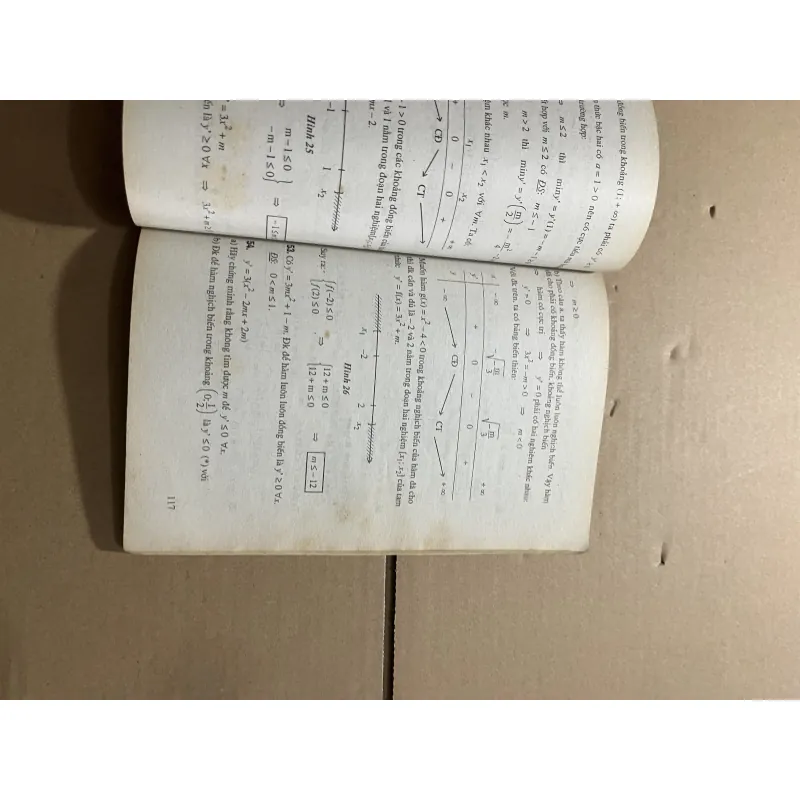 đồng biến trong khoảng (1; + ∞) ta phải có y'
thức bậc hai có a = 1 > 0 nên có cực tiểu
trường hợp:
m ≤ 2 thì miny' = y'(1) = -m
hợp với m ≤ 2 có ĐS: m ≤ -1
m > 2 thì miny' = y'(m/2) = - m²
m.
khác nhau x₁ < x₂ với ∀m. Ta có
x₁ x₂ +∞
+ 0 - 0 +
CĐ CT
- 1 > 0 trong các khoảng đồng biến
và 1 nằm trong đoạn hai nghiệm
mx - 2.
-1 1 x₂
Hình 25
⇒ { m - 1 ≤ 0
- m - 1 ≤ 0 } ⇒ -1 ≤
= 3x² + m
là y' ≥ 0 ∀x ⇒ 3x² +
⇒ m ≥ 0
b) Theo câu a, ta thấy hàm không thể luôn luôn nghịch biến. Vậy hàm
đã cho phải có khoảng đồng biến, khoảng nghịch biến
⇒ hàm có cực trị ⇒ y' = 0 phải có hai nghiệm khác nhau:
y' = 0 ⇒ 3x² = -m > 0 ⇒ m < 0
Với đk trên, ta có bảng biến thiên:
x -∞ -√(-m/3) √(-m/3) +∞
y' + 0 - 0 +
y -∞ CĐ CT +∞
Muốn hàm g(x) = x² - 4 < 0 trong khoảng nghịch biến của hàm đã cho
thì đk cần và đủ là - 2 và 2 nằm trong đoạn hai nghiệm [x₁; x₂] của tam
thức y' = f(x) = 3x² + m.
x₁ -2 2 x₂
Hình 26
Suy ra: { f(-2) ≤ 0
f(2) ≤ 0 ⇒ { 12 + m ≤ 0
12 + m ≤ 0 ⇒ m ≤ -12
53. Có y' = 3mx² + 1 - m. Đk để hàm luôn luôn đồng biến là y' ≥ 0 ∀x.
ĐS: 0 < m ≤ 1.
54. y' = 3(x² - 2mx + 2m)
a) Hãy chứng minh rằng không tìm được m để y' ≤ 0 ∀x.
b) Đk để hàm nghịch biến trong khoảng (0; 1/2) là y' ≤ 0 (*) với
117